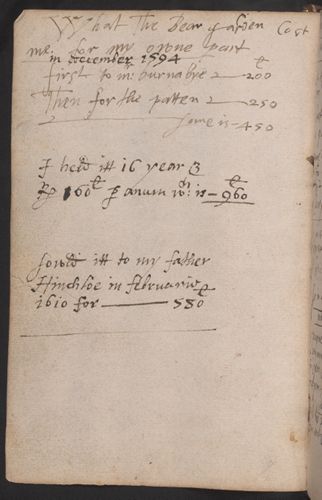 What The Bear garden Cost
me for my owne part
in december 1594
first to mr burnabye 200 £
Then for the patten 250
Some is - 450
I held itt 16 year &
p 60 £ p anum wch is - 960 £
Sowld itt to my father
Hinchloe in februarie
1610 for 580 £